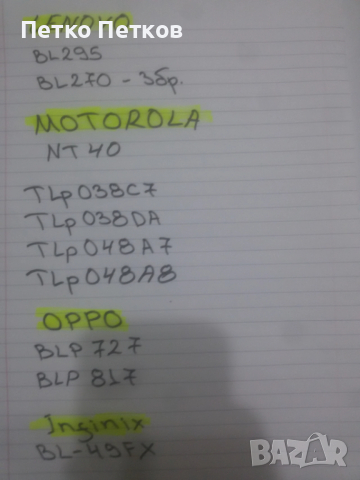 Петко Петков
LENOVO
BL295
BL270 - 3бр.
MOTOROLA
NT40
TLp038C7
TLp038DA
TLp048A7
TLp048A8
OPPO
BLP 727
BLP 817
Inginix
BL-49FX
BAZAR